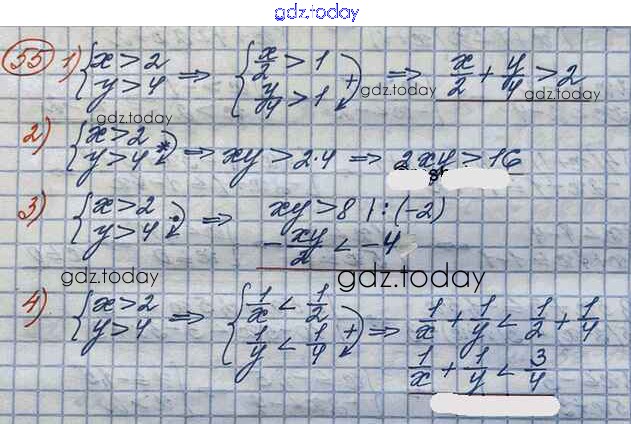 gdz.today
55 1) { x > 2 y > 4 ⇒ { x/2 > 1 y/4 > 1 + ⇒ x/2 + y/4 > 2
gdz.today gdz.today gdz.today
2) { x > 2 y > 4 * ⇒ xy > 2·4 ⇒ 2xy > 16
3) { x > 2 y > 4 · ⇒ xy > 8 | : (-2)
- xy/2 < -4
gdz.today gdz.today
4) { x > 2 y > 4 ⇒ { 1/x < 1/2 1/y < 1/4 + ⇒ 1/x + 1/y < 1/2 + 1/4
1/x + 1/y < 3/4